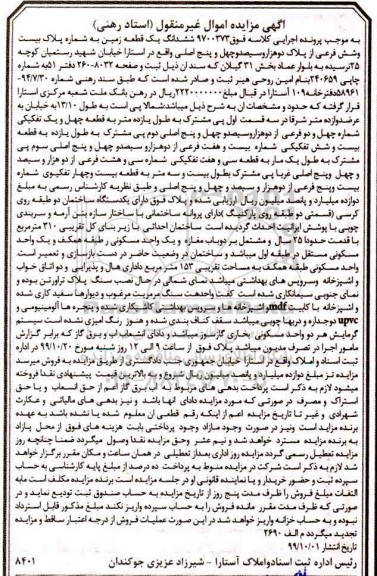 آگهی مزایده اموال غیرمنقول (اسناد رهنی)
به موجب پرونده اجرایی کلاسه فوق ۹۷۰۰۳۷۳ ششدانگ یک قطعه زمین به شماره پلاک بیست
وشش فرعی از پلاک دوهزاروسیصدوچهل و پنج اصلی واقع در آستارا خیابان شهید رستمیان کوچه
۲۵رسیده به بلوار عماد بخش ۳۱ گیلان که سند آن ذیل ثبت و صفحه ۸۰۳۲-۲۶۰ دفتر ۵۱به شماره
چاپی ۲۴۰۶۵۹بنام امین روحی هیر ثبت و صادر شده است که طبق سند رهنی شماره ۹۴/۷/۳۰-
۵۸۹۶۱دفترخانه۱۰۹ آستارا در قبال مبلغ ریال در رهن بانک ملت شعبه مرکزی آستارا
قرار گرفته که حدود و مشخصات آن به شرح ذیل میباشدشمالا پی است به طول ۱۳/۱۰به خیابان به
عرضدوازده متر شرقا در سه قسمت اول پی مشترک به طول یازده متر به قطعه چهل و یک تفکیکی
شماره چهل و دو فرعی از دوهزاروسیصدو چهل و پنج اصلی دوم پی مشترک به طول یازده به قطعه
بیست و شش تفکیکی شماره بیست و هفت فرعی از دوهزارو سیصدو چهل و پنج اصلی سوم پی
مشترک به طول یک متر به قطعه سی و هفت تفکیکی شماره سی و هشت فرعی از دو هزار و سیصد
و چهل وپنج اصلی غربا پی مشترک بطول بیست و سه متر به قطعه بیست وچهار تفکیکی شماره
بیست وپنج فرعی از دوهزار و سیصد و چهل و پنج اصلی و طبق نظریه کارشناس رسمی به مبلغ
دوازده میلیارد و پانصد میلیون ریال ارزیابی شده و پلاک فوق دارای یکدستگاه ساختمان دو طبقه روی
کرسی (قسمتی دو طبقه روی پارکینگ )دارای پروانه ساختمانی با ساختار سازه بتن آرمه و سربندی
چوبی با پوشش ایرانیت احداث گردیده است ساختمان احداثی با زیر بنای کل تقریبی ۳۱۰ مترمربع
با قدمت حدودا ۲۵ سال و مشتمل بر دوباب مغازه و یک واحد مسکونی در طبقه همکف و یک واحد
مسکونی مستقل در طبقه اول میباشد و ساختمان در وضعیت حاضر در دست بازسازی و تعمیر است
واحد مسکونی طبقه همکف به مساحت تقریبی ۱۵۳ متر مربع دارای هال و پذیرایی و دو اتاق خواب
و آشپزخانه وسرویس های بهداشتی میباشد نمای شمالی در حال نصب سنگ پلاک تراورتن بوده و
نمای جنوبی سیمانکاری شده است کفت واحدهت سنگ مرمریت مرغوب و دیوارها سفید کاری شده
و آشپزخانه با کابینت mdfو آشپزخانه ها و سرویس بهداشتی کاشیکاری شده و پنجره ها آلومینیومی و
upvc دوجداره و دربها چوبی میباشد سقف کناف بندی شده و هنوز رنگ آمیزی نشده است سیستم
گرمایش هر دو واحد مسکونی بخاری گازسوز میباشد و دارای انشعاب آب و برق گاز که برابر گزارش
مامور اجرا در تصرف مدیون میباشد پلاک فوق از ساعت ۹ الی ۱۲ روز شنبه مورخ ۹۹/۱۰/۲۰ در اداره
ثبت اسناد و املاک واقع در آستارا خیابان جمهوری جنب دادگستری از طریق مزایده به فروش میرسد
مزایده از مبلغ دوازده میلیارد و پانصد میلیون ریال شروع و به بالاترین قیمت پیشنهادی نقدا فروخته
میشود لازم به ذکر است پرداخت بدهی های مربوط به آب و برق گاز اعم از حق انشعاب و یا حق
اشتراک و مصرف در صورتی که مورد مزایده دارای آنها باشد و نیز بدهی های مالیاتی و عکارت
شهرداری و غیر تا تاریخ مزایده اعم از اینکه رقم قطعی آن معلوم شده یا نشده باشد به عهده
برنده مزایده است ونیز در صورت وجود مازاد وجوه پرداختی بابت هزینه های فوق از محل مازاد
به برنده مزایده مسترد خواهد شد و نیم عشر وحق مزایده نقدا وصول میگردد ضمنا چنانچه روز
مزایده تعطیل رسمی گردد مزایده روز اداری بعداز تعطیلی در همان ساعت و مکان مقرر برگزار خواهد
شد لازم به ذکر است شرکت در مزایده منوط به پرداخت ده درصد از مبلغ پایه کارشناسی به حساب
سپرده ثبت و حضور خریدار و یا نماینده قانونی او در جلسه مزایده است برنده مزایده مکلف است مابه
التفات مبلغ فروش را ظرف مدت پنج روز از تاریخ مزایده به حساب صندوق ثبت تودیع نماید و در
صورتی که ظرف مدت مقرر مانده فروش را به حساب سپرده واریز نکند مبلغ مذکور قابل استرداد
نبوده و به حساب خزانه واریز خواهد شد در این صورت عملیات فروش از درجه اعتبار ساقط و مزایده
تجدید میگردد م الف ۲۶۹۰
تاریخ انتشار ۹۹/۱۰/۰۱
رئیس اداره ثبت اسنادواملاک آستارا - شیرزاد عزیزی جوکندان ۸۴۰۱